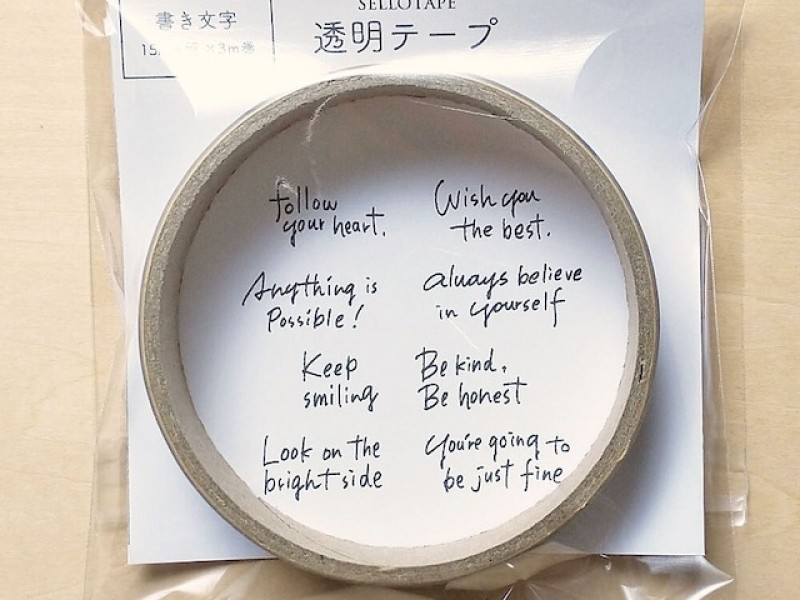 SELLOTAPE
書き文字
透明テープ
follow
your heart.
Wish you
the best.
Anything is
Possible!
always believe
in yourself
Keep
smiling
Be kind,
Be honest
Look on the
bright side
You're going to
be just fine